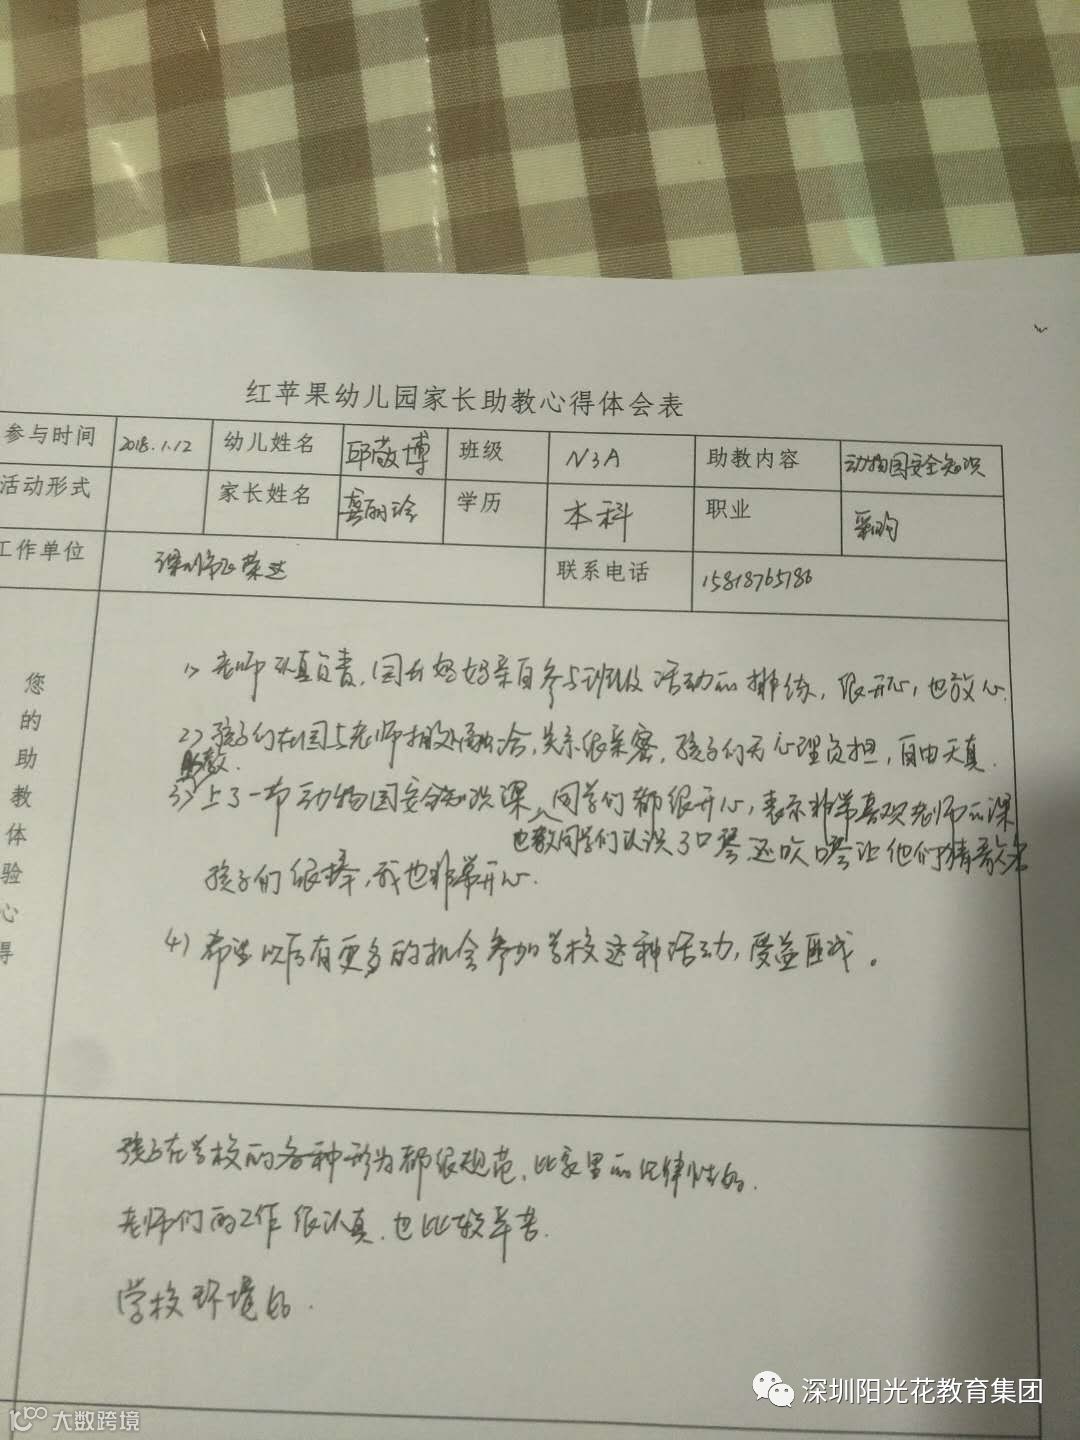 红苹果幼儿园家长助教心得体会表
参与时间 2018.1.12 幼儿姓名 邱敬博 班级 N3A 助教内容 动物园安全知识
活动形式 家长姓名 龚丽玲 学历 本科 职业 采购
工作单位 深圳市正荣达 联系电话 15818765786
您的助教体验心得
1) 老师认真负责,园长妈妈亲自参与班级活动的排练,很开心,也放心.
2) 孩子们在园与老师相处融洽,关系很亲密,孩子们无心理负担,自由天真.
3) 上了一节动物园安全知识课,同学们都很开心,表示非常喜欢老师的课
也教同学们认识了口琴还吹口琴让他们猜歌名
孩子们很棒,我也非常开心.
4) 希望以后有更多的机会参加学校这种活动,受益匪浅。
孩子在学校的各种行为都很规范,比家里的纪律性好.
老师们的工作很认真,也比较辛苦.
学校环境好.
深圳阳光花教育集团
大数跨境